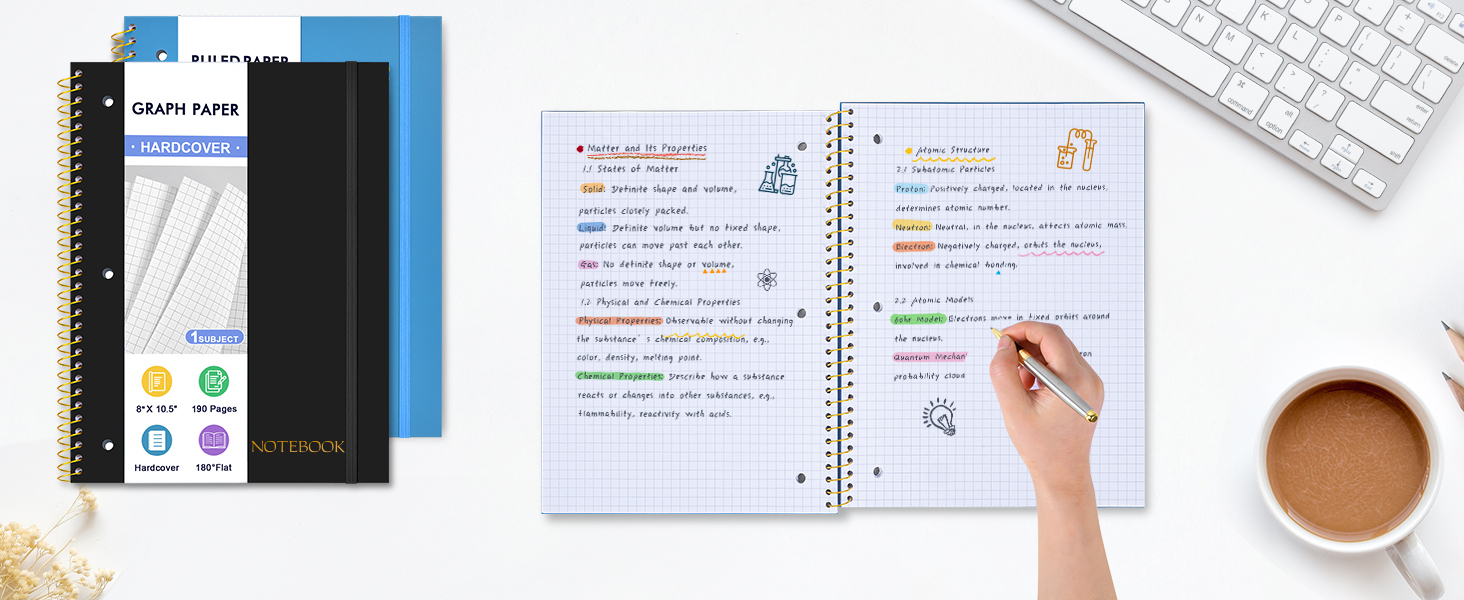 RULED PAPER
GRAPH PAPER
· HARDCOVER ·
1 SUBJECT
8" X 10.5"
190 Pages
Hardcover
180° Flat
NOTEBOOK
Matter and Its Properties
1.1 States of Matter
Solid: Definite shape and volume,
particles closely packed.
Liquid: Definite volume but no fixed shape,
particles can move past each other.
Gas: No definite shape or volume,
particles move freely.
1.2 Physical and Chemical Properties
Physical Properties: Observable without changing
the substance's chemical composition, e.g.,
color, density, melting point.
Chemical Properties: Describe how a substance
reacts or changes into other substances, e.g.,
flammability, reactivity with acids.
Atomic Structure
2.1 Subatomic Particles
Proton: Positively charged, located in the nucleus,
determines atomic number.
Neutron: Neutral, in the nucleus, affects atomic mass.
Electron: Negatively charged, orbits the nucleus,
involved in chemical bonding.
2.2 Atomic Models
Bohr Model: Electrons move in fixed orbits around
the nucleus.
Quantum Mechan
probability cloud
B N M K L
command
option
alt
delete
enter
return
shift